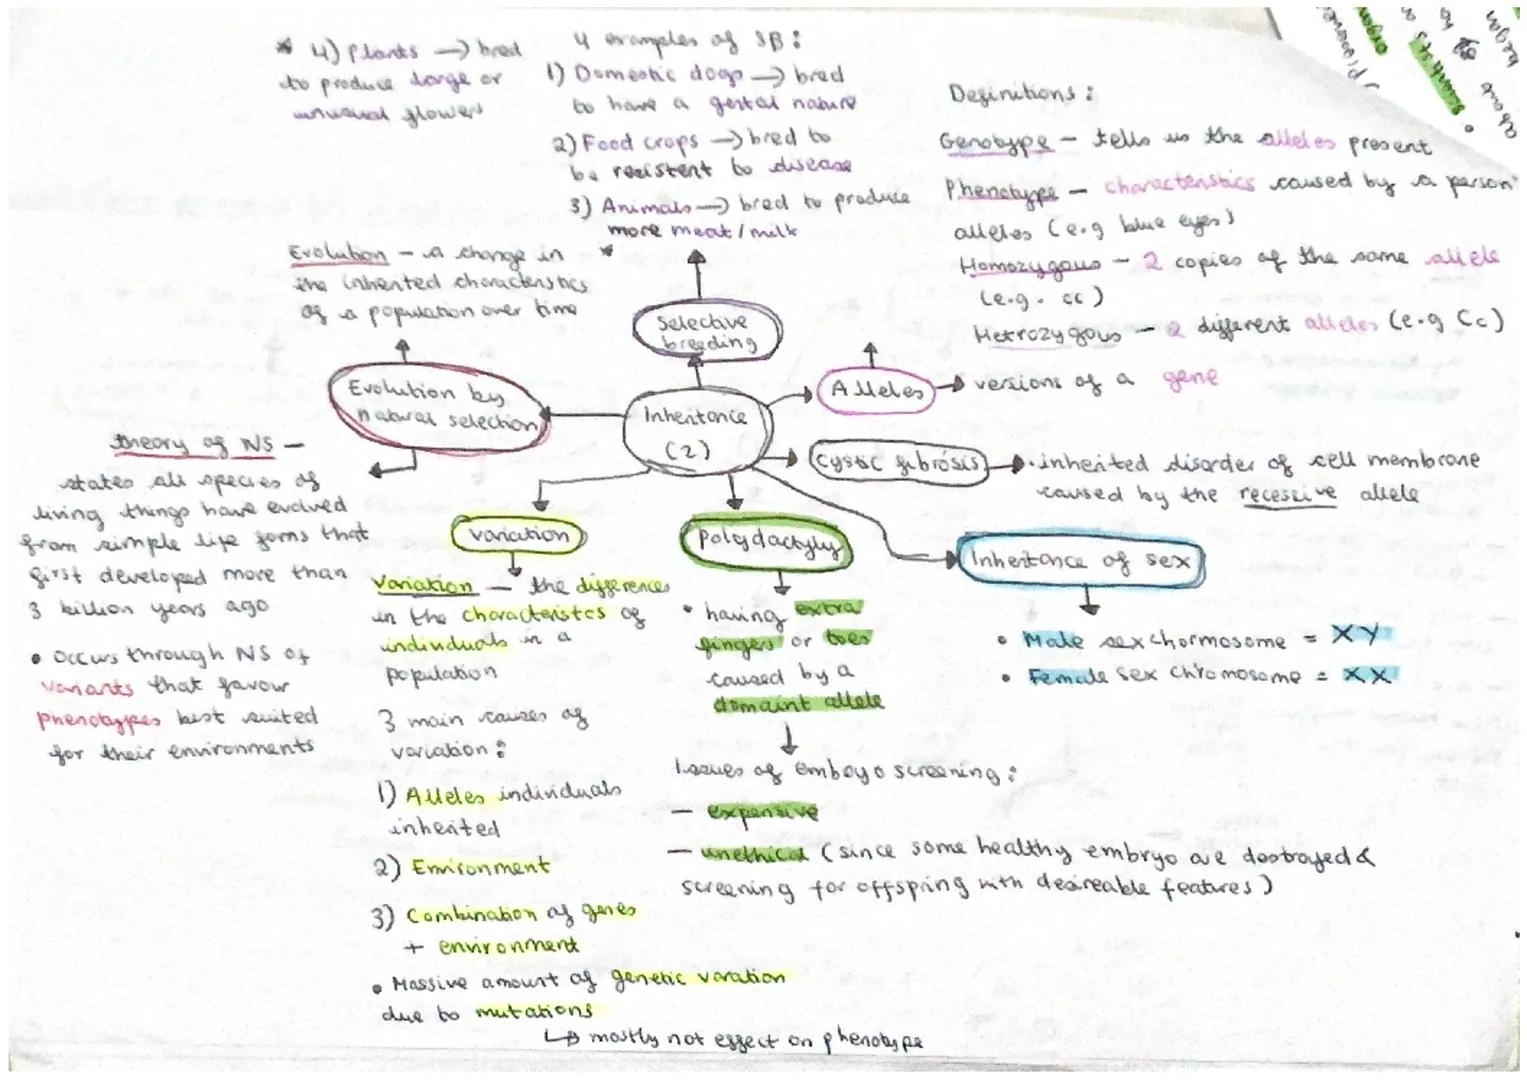 4 examples of SB:
1) Domestic dogs → bred
to have a gental nature
2) Food crops → bred to
be resistent to disease
3) Animals → bred to produce
more meat/milk
*
* 4) Plants → bred
to produce large or
unusual flowers
Selective
breeding
Definitions:
Genotype – tells us the alleles present
Phenotype – characteristics caused by a person'
alleles (e.g blue eyes)
Homozygous – 2 copies of the same allele
(e.g. cc)
Hetrozygous – 2 different alleles (e.g Cc)
Alleles → versions of a gene
Evolution – a change in
the inherited characteristics
of a population over time
Evolution by
natural selection
Inheritance
(2)
theory of NS –
states all species of
living things have evolved
from simple life forms that
first developed more than
3 billion years ago
• Occurs through NS of
variants that favour
phenotypes best suited
for their environments
Cystic fibrosis → • inherited disorder of cell membrane
caused by the recessive allele
Variation
Variation – the differences
in the characteristcs of
individuals in a
population
3 main causes of
variation:
1) Alleles individuals
inherited
2) Environment
3) Combination of genes
+ environment
• Massive amount of genetic varation
due to mutations
↳ mostly not effect on phenotype
Polydactyly
• having extra
fingers or toes
caused by a
domaint allele
Issues of emboyo screening:
– expensive
– unethical (since some healthy embryo are destroyed &
screening for offspring with desireable features)
Inheritance of sex
• Male sex chormosome = XY
• Female sex chromosome = XX